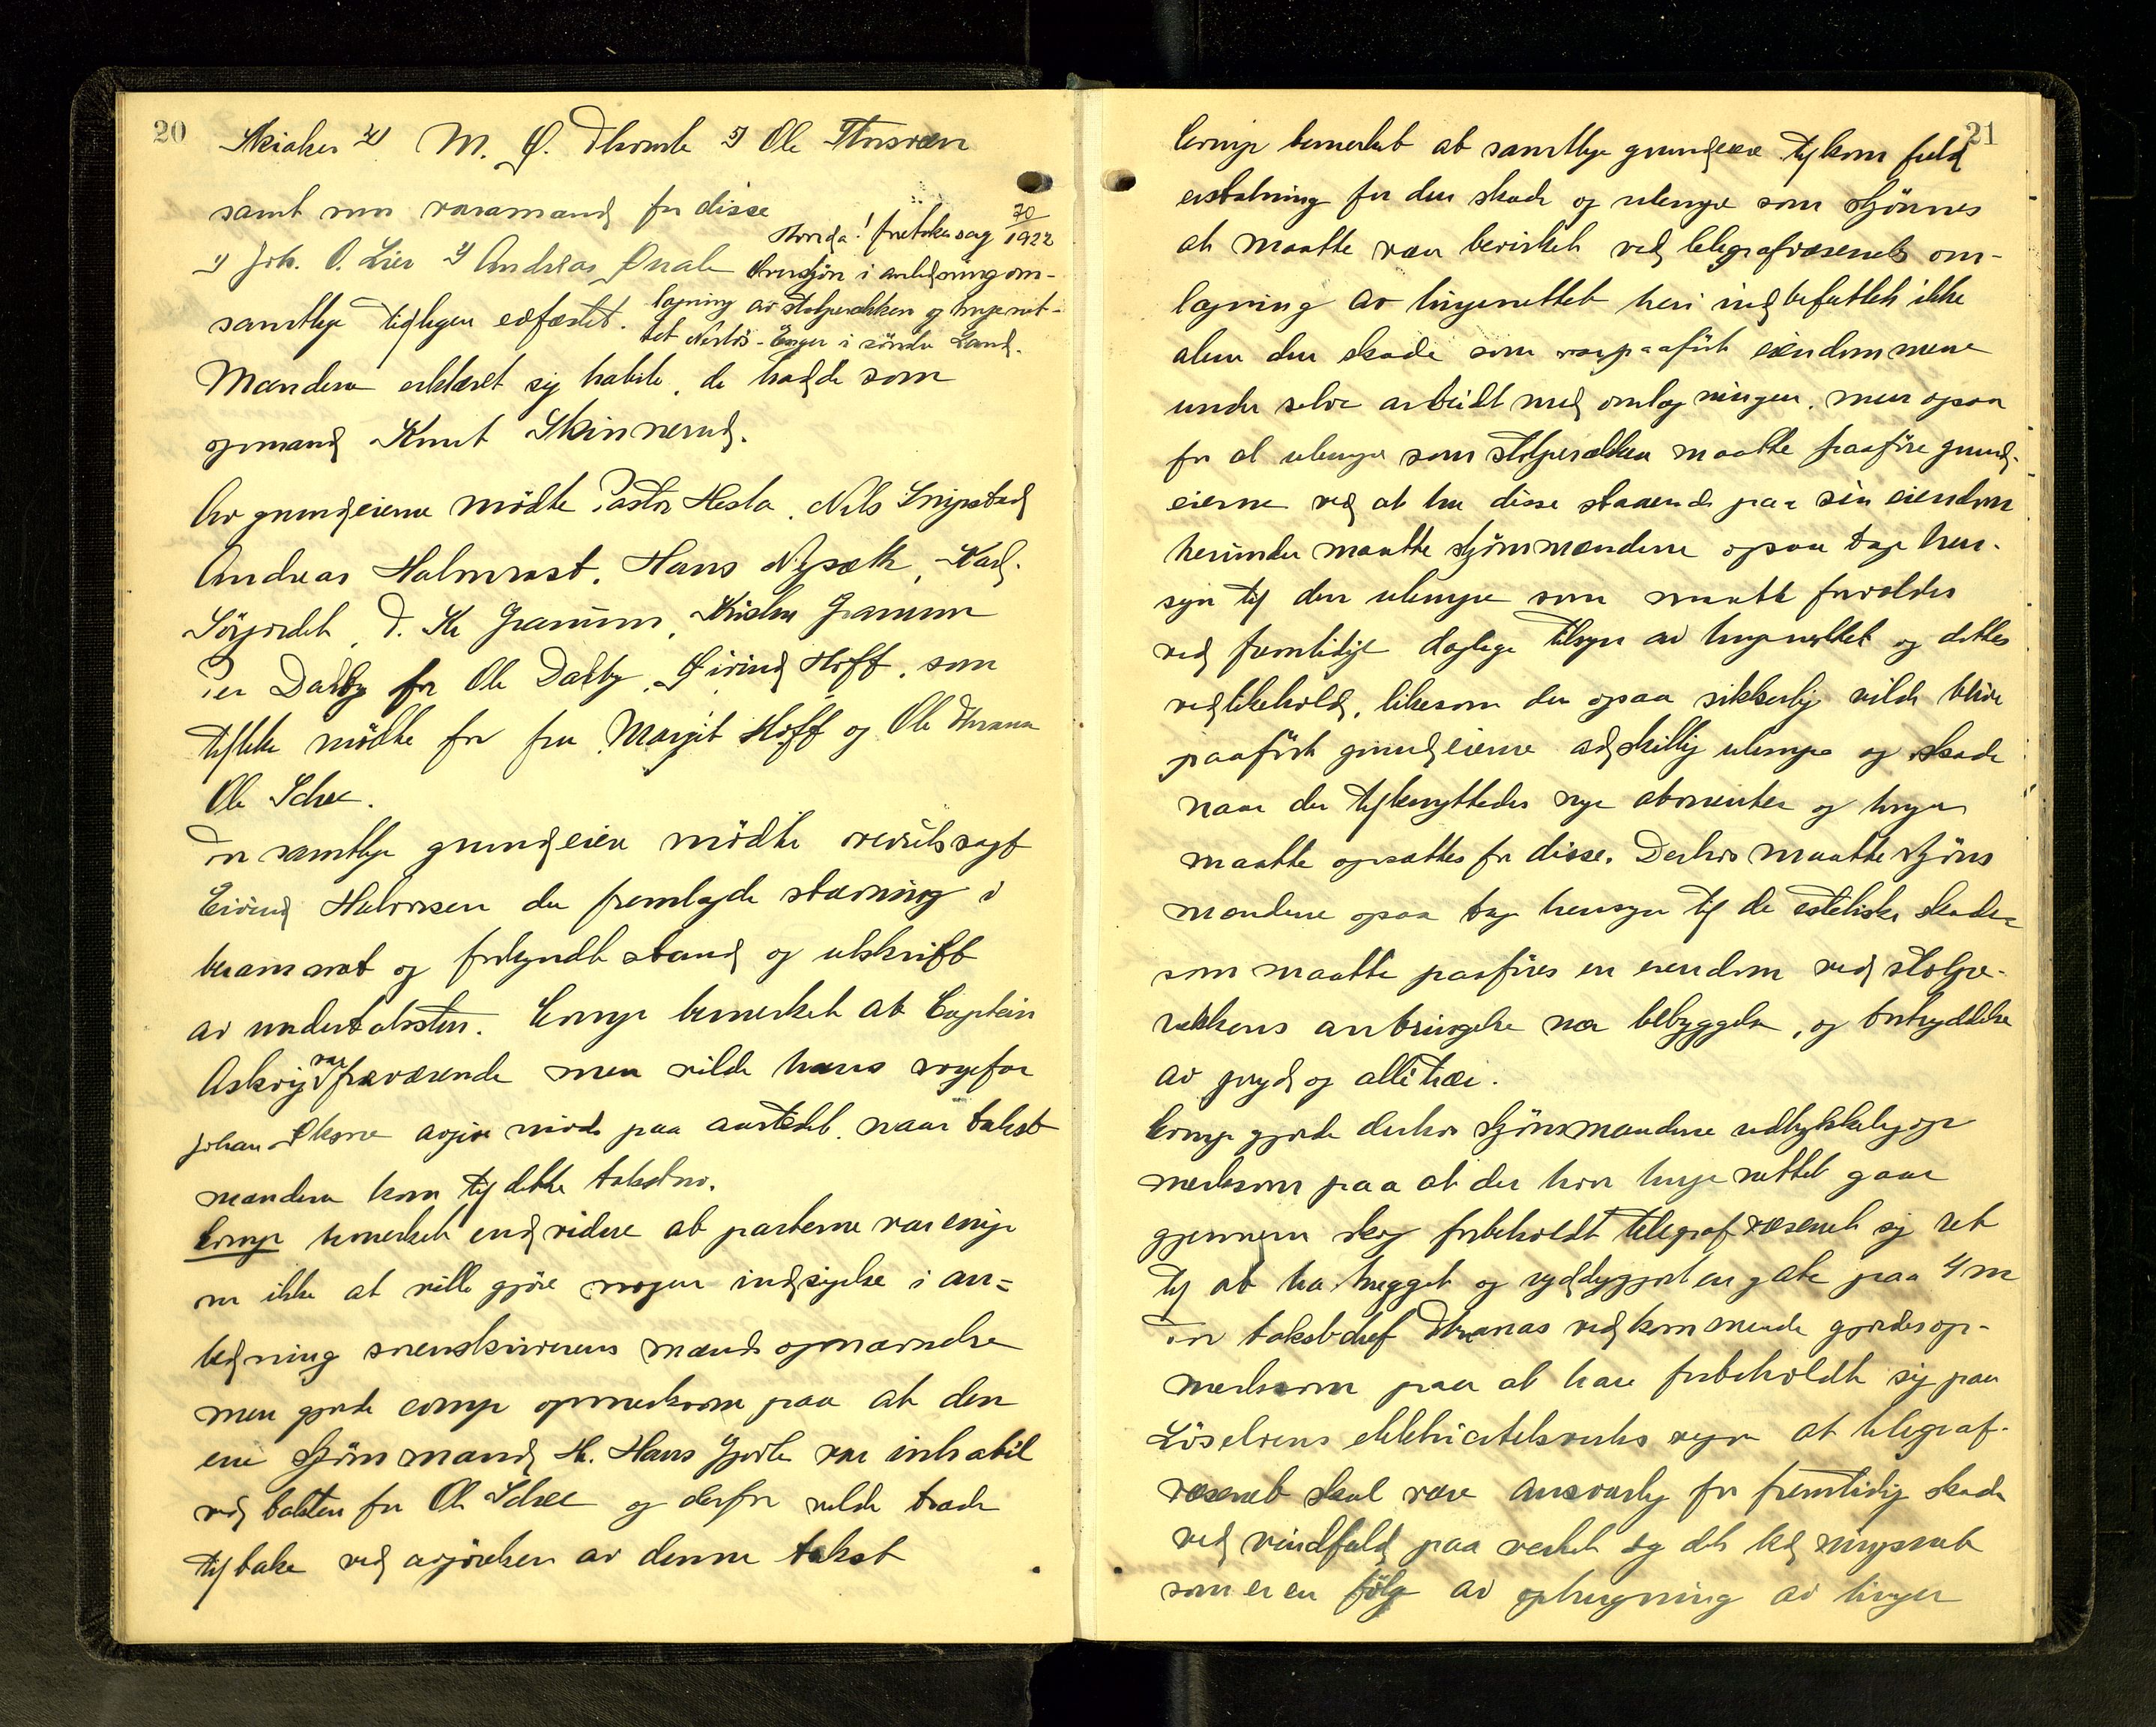 20
Skiaker 4) M. Ø. Thomle 5) Ole
samt som varamænd for disse
Hvorda! foretokes sag 70/1922
1) Joh. O. Lier 2) Andreas Ønale
Overskjøn i anledning om-
lægning av stolperækken og linjenet-
tet i søndre Land.
samtlige tidligere edfæstet.
Mændene erklæret sig habile, de hadde som
opmand Knut Skinnerud.
Av grundeierne mødte Pastor Hesla, Nils Snipstad
Andreas Halmrast, Hans Nysæth, Karl
Sørjordet, D. Kr Granum, Kristen Granum
Per Dalby for Ole Dalby, Eivind Hoff, som
tillike mødte for fru Margit Hoff og Ole Thrana
Ole Schee.
For samtlige grundeiere mødte overretssagf
Eivind Halvorsen der fremlagde stævning i
berammet og forkyndt stand og utskrift
av undertaksten. Comp bemerket at Captein
Askvig var fraværende men vilde hans
Johan avgive møde paa aastedet, naar takst
mændene kom til dette takstno.
Comp bemerket endvidere at parterne var enige
om ikke at ville gjøre nogen indsigelse i an=
ledning mænds opnævnelse
men gjorde comp opmerksom paa at den
ene skjønsmand H. Hans var inhabil
ved taksten for Ole Schee og derfor vilde træde
tilbake ved avgjørelsen av denne takst
21
Comp bemerket at samtlige grundeiere tilkom fuld
erstatning for den skade og ulempe som skjønnes
at maatte være bevirket ved telegrafvæsenets om-
lægning av linjenettet heri indbefattet ikke
alene den skade som var paaført eiendommene
under selve arbeidet med omlægningen, men ogsaa
for al ulempe som stolperækken maatte paaføre grund-
eierne ved at ha disse staaende paa sin eiendom
herunder maatte skjønsmændene ogsaa tage hen-
syn til den ulempe som maatte forvoldes
ved fremtidige daglige tilsyn av linjenettet og dettes
vedlikehold, likesom der ogsaa sikkerlig vilde blive
paaført grundeierne adskillig ulempe og skade
naar der tilknyttedes nye abonnenter og linjer
maatte opsættes for disse. Derhos maatte skjøns
mændene ogsaa tage hensyn til de estetiske skader
som maatte paaføres en eiendom ved stolpe-
rækkens anbringelse nær bebyggelse, og
av pryd og allétrær.
Comp gjorde derhos skjønsmændene udtrykkelig op
merksom paa at der hvor linje nettet gaar
gjennem skog forbeholdt telegrafvæsenet sig ret
til at ha hugget og ryddiggjort en gate paa 4 m
For Thranas vedkommende gjordes op-
merksom paa at han forbeholdt sig paa
Løselvens elektricitetsverks vegne at telegraf-
væsenet skal være ansvarlig for fremtidig skade
ved vindfald paa verket og dets ledningsnet
som er en følge av ophugning av linjer